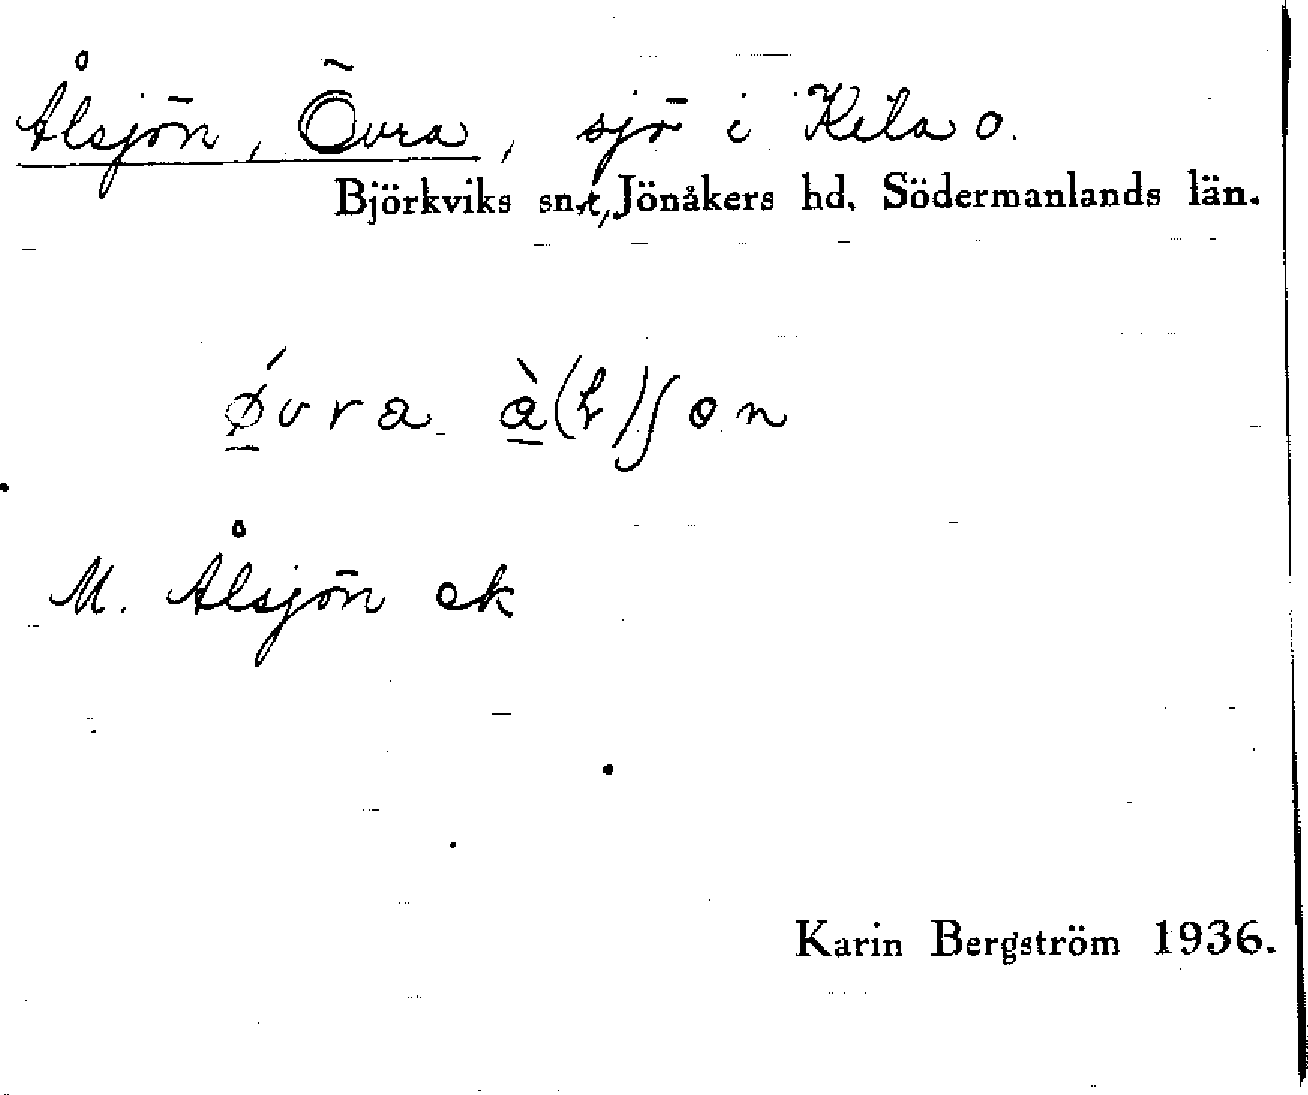 Ålsjön, Övra, sjö i Kila o.
Björkviks sn.r, Jönåkers hd. Södermanlands län.
ǿvra à(l)ʃon
M. Ålsjön ek
Karin Bergström 1936.